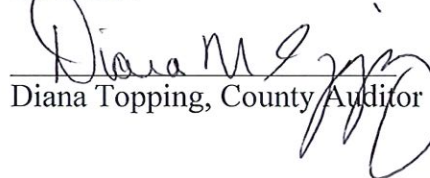 Diana M
Diana Topping, County Auditor